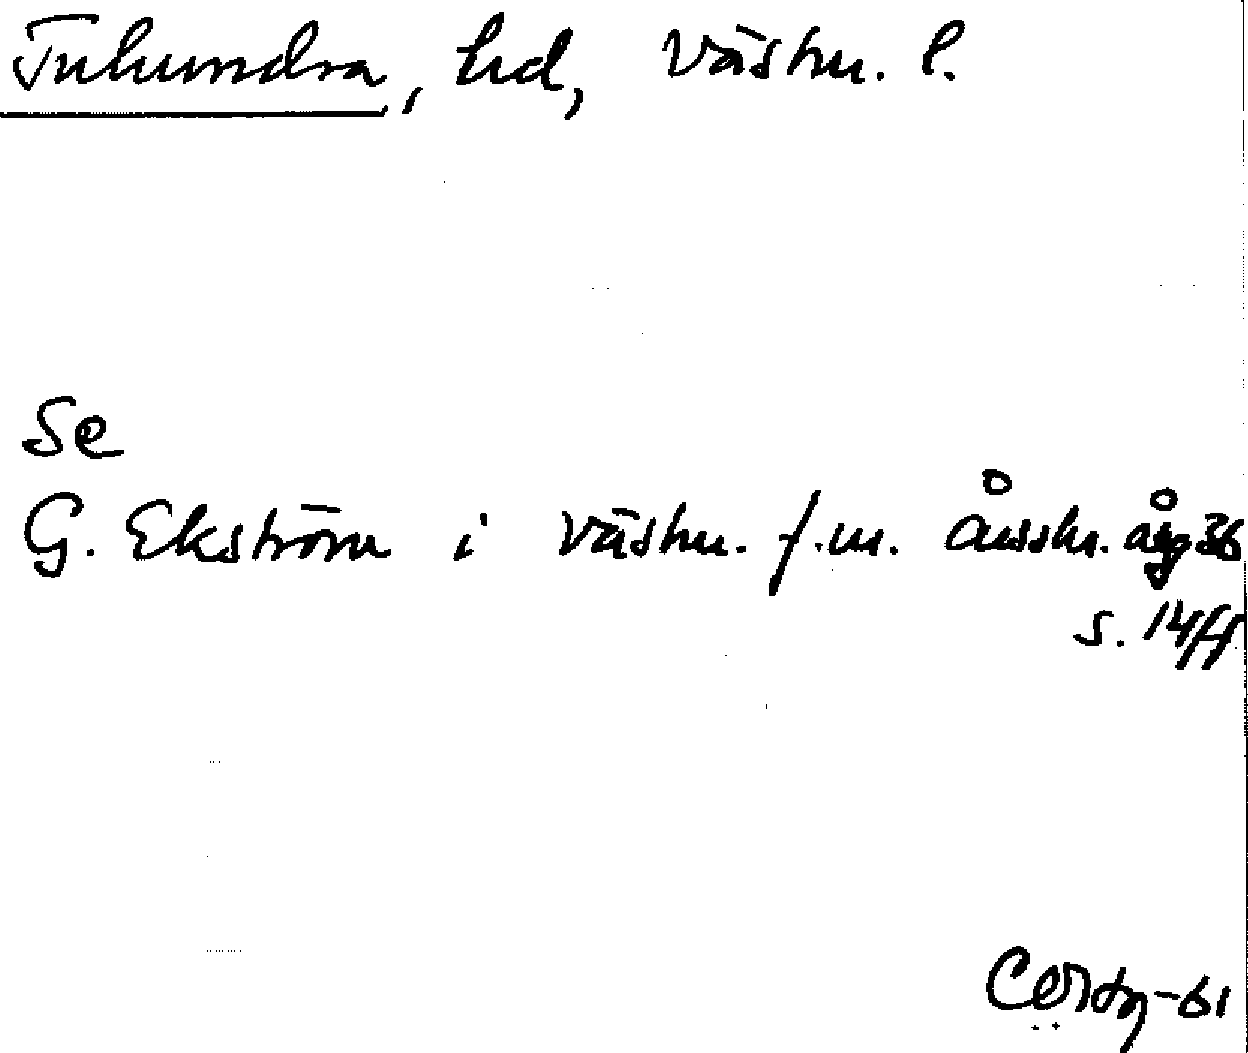 Tuhundra, hd, Västm. l.
Se
G. Ekström i Västm. f.m. Årsskr. årg 36
s. 14ff